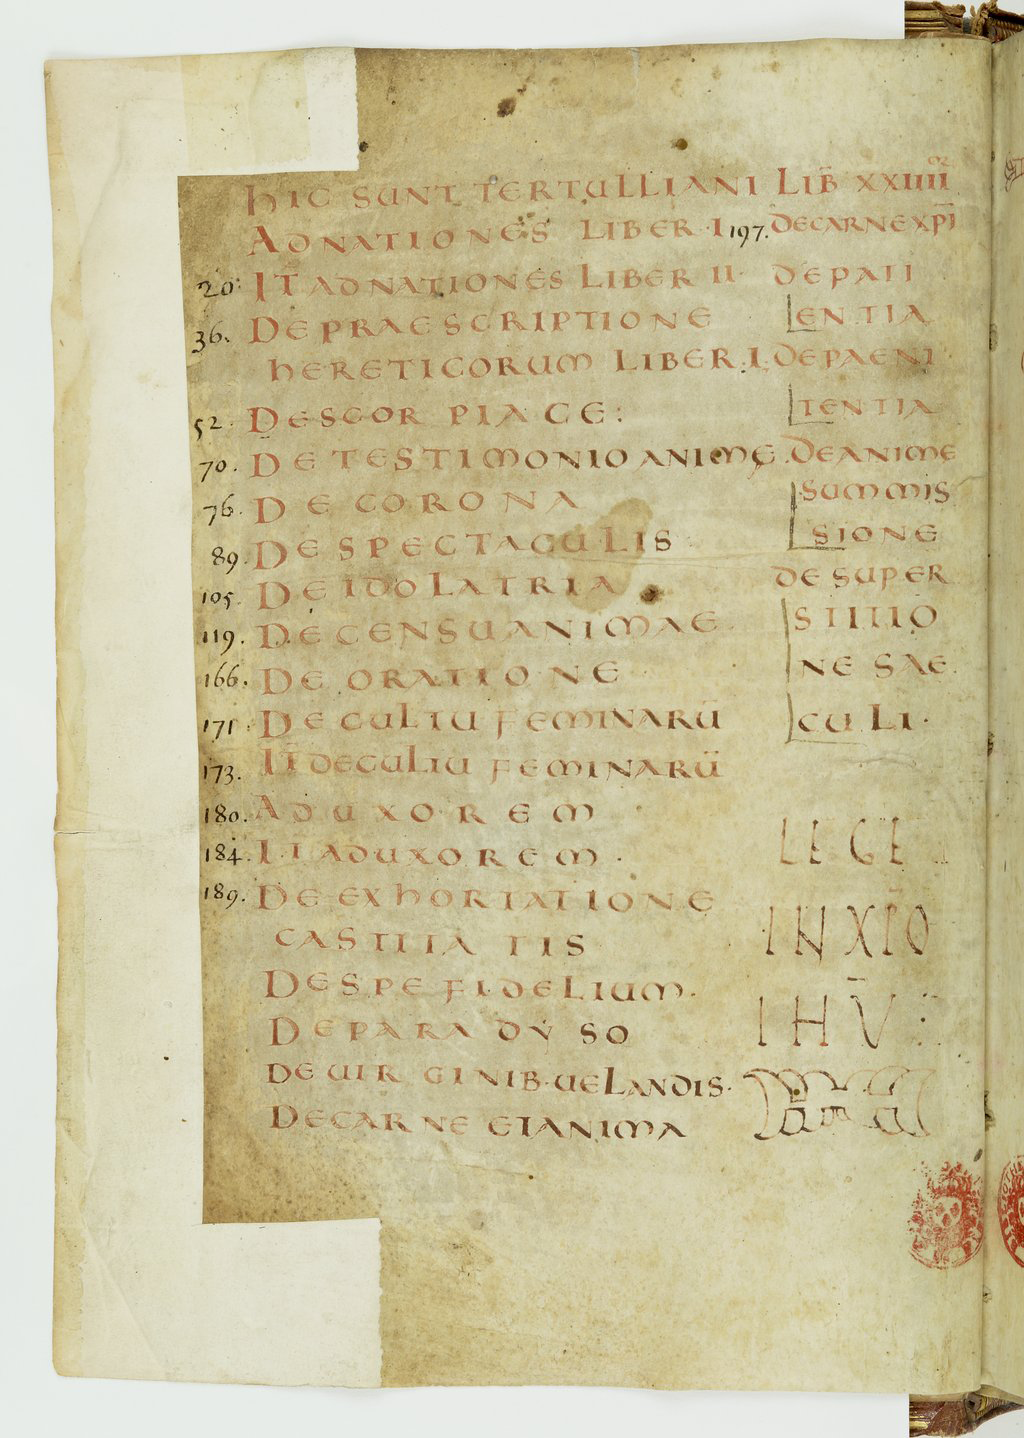 hIC SUNT TERTULLIANI LIB̄ XXIIII
OR
ADNATIONES LIBER I
20. IT̄ ADNATIONES LIBER II
36. DE PRAESCRIPTIONE
hERETICORUM LIBER I
52. DE SCORPIACE:
70. DE TESTIMONIO ANIMĘ
76. DE CORONA
89. DE SPECTACULIS
105. DE IDOLATRIA
119. DE CENSU ANIMAE
166. DE ORATIONE
171. DE CULTU FEMINARŪ
173. IT̄ DE CULTU FEMINARŪ
180. AD UXOREM
184. IT AD UXOREM.
189. DE EXhORTATIONE
CASTITATIS
DE SPE FIDELIUM.
DE PARADYSO
DE UIRGINIB· UELANDIS·
DE CARNE ET ANIMA
197. DE CARNE XP̄I
DE PATI
ENTIA
DE PAENI
TENTIA
DE ANIME
SUMMIS
SIONE
DE SUPER
STITIO
NE SAE
CULI·
LEGE
IN XP̄O
IHV̄